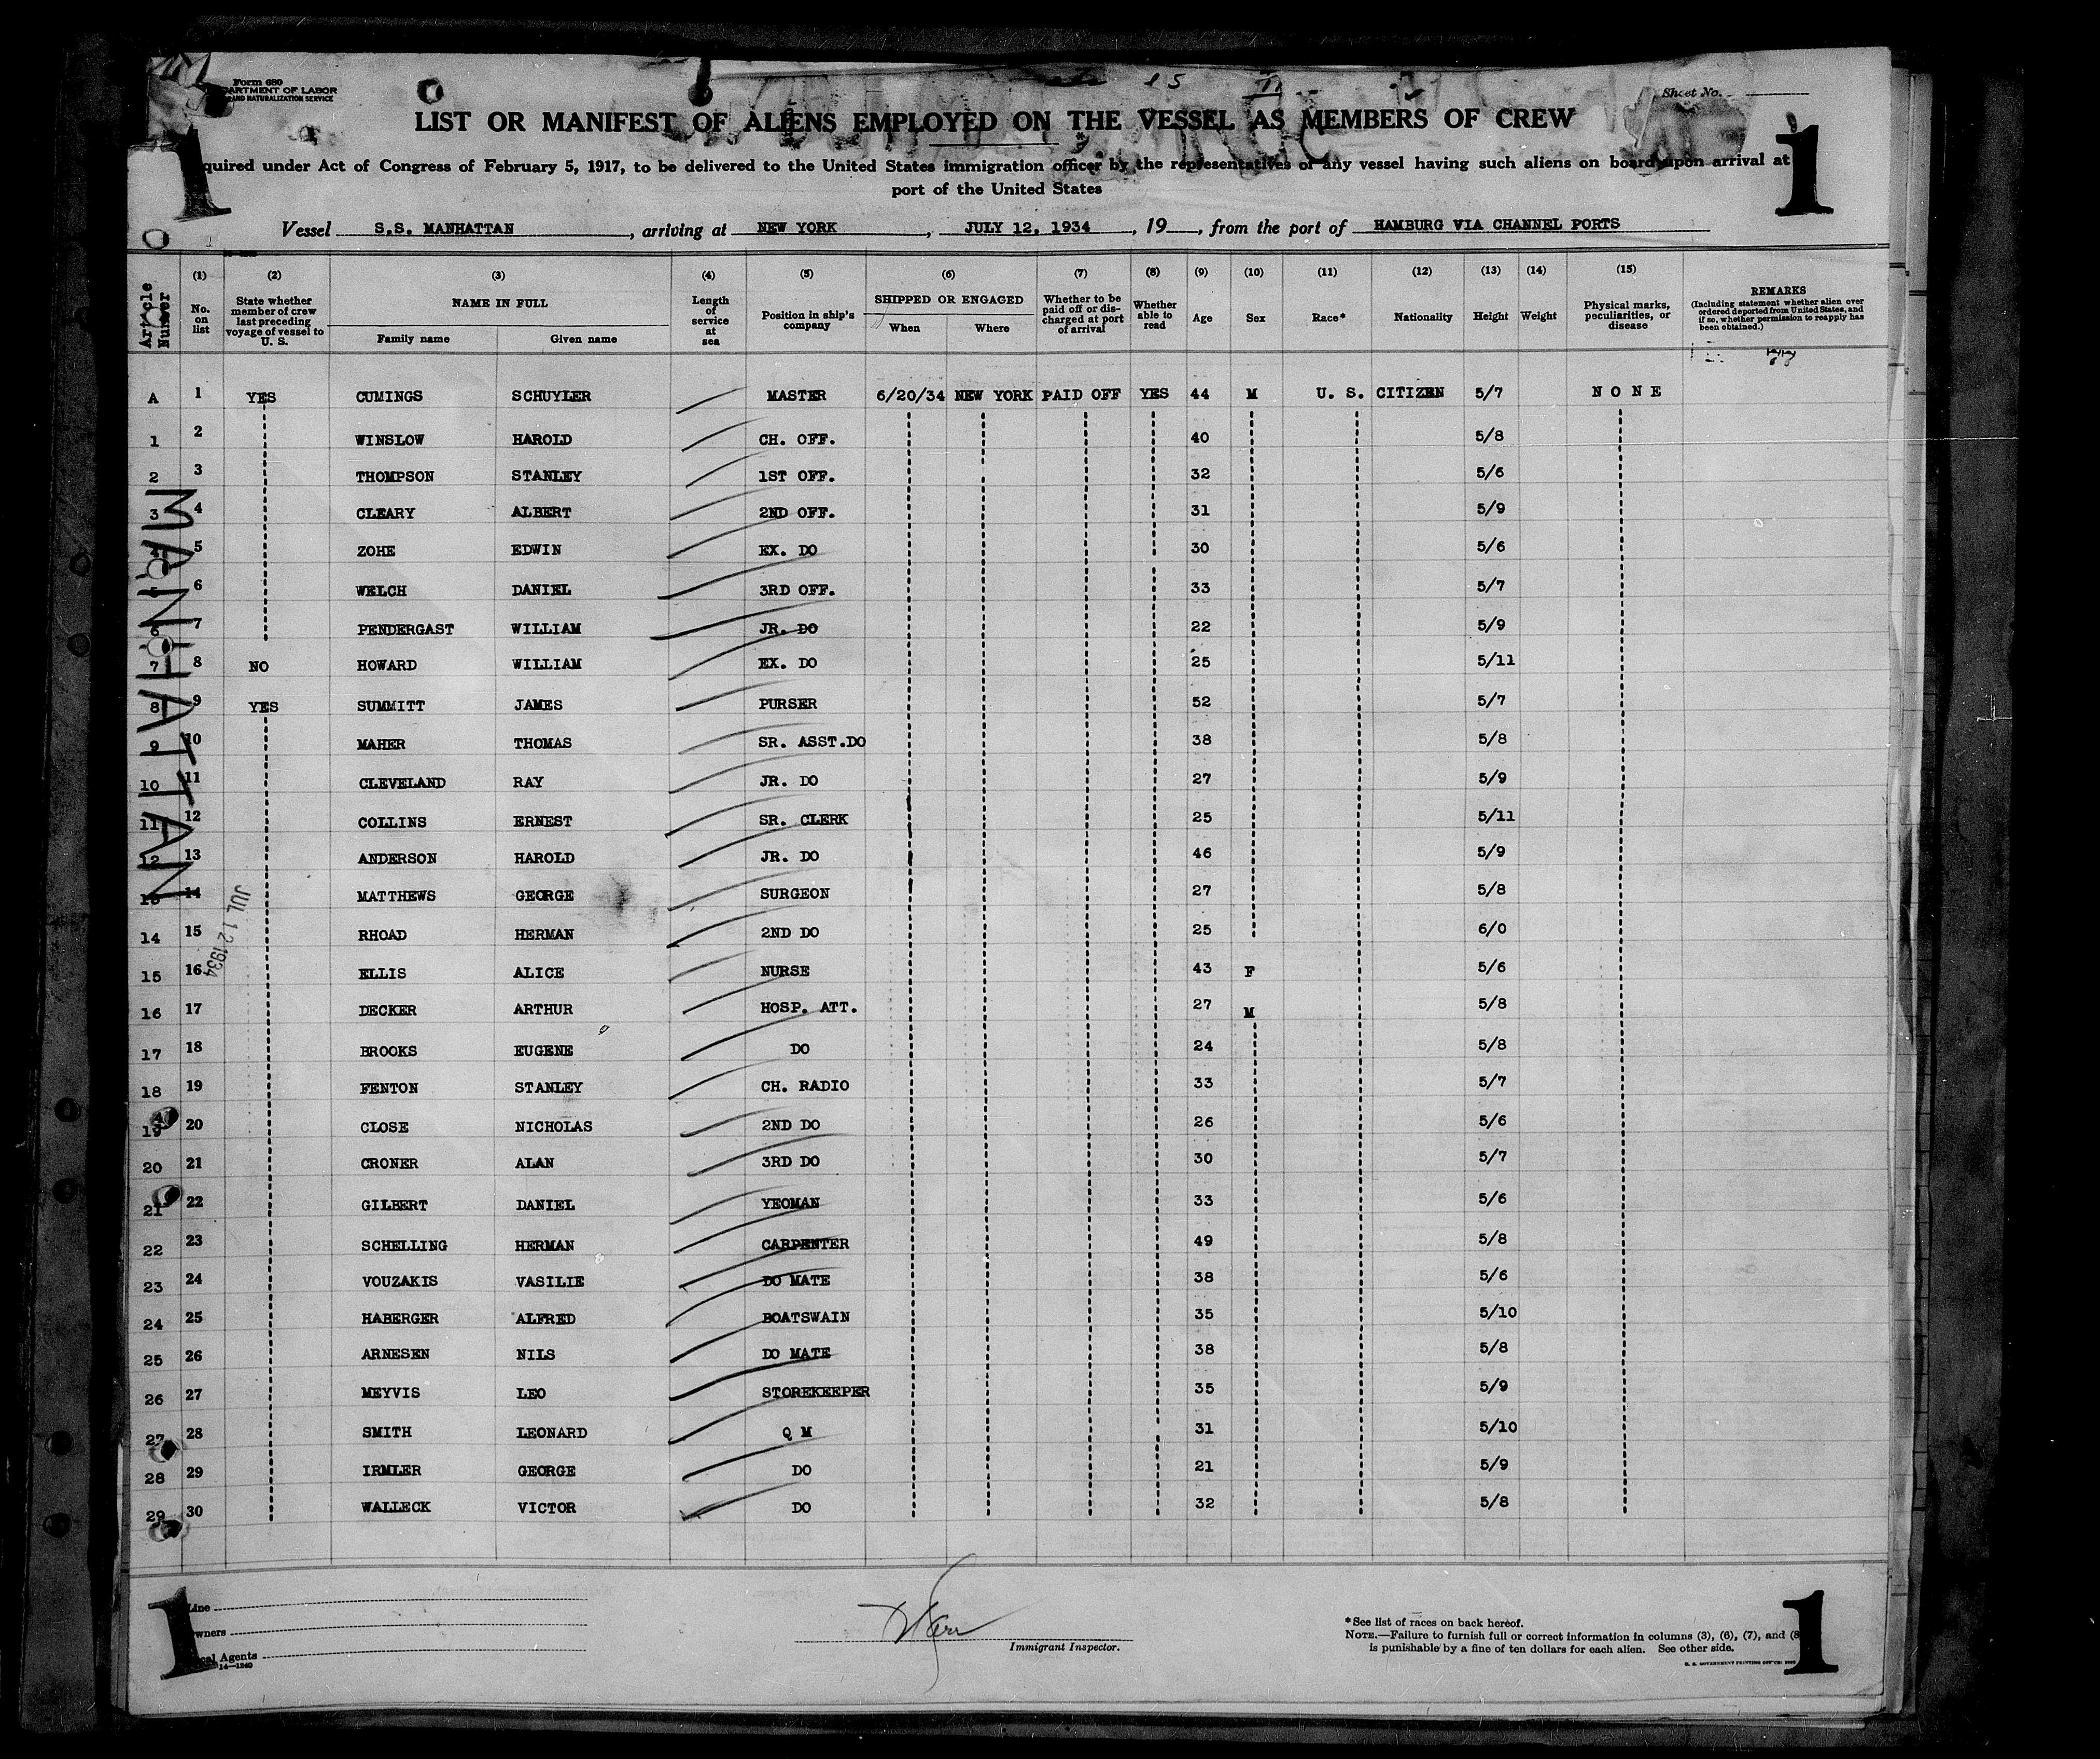 Form 680
DEPARTMENT OF LABOR
AND NATURALIZATION SERVICE
Sheet No.
1
LIST OR MANIFEST OF ALIENS EMPLOYED ON THE VESSEL AS MEMBERS OF CREW
1
quired under Act of Congress of February 5, 1917, to be delivered to the United States immigration officer by the representatives of any vessel having such aliens on board upon arrival at
port of the United States
Vessel S.S. MANHATTAN, arriving at NEW YORK, JULY 12, 1934, 19, from the port of HAMBURG VIA CHANNEL PORTS
(1) (2) (3) (4) (5) (6) (7) (8) (9) (10) (11) (12) (13) (14) (15)
Article Number
No. on list
State whether member of crew last preceding voyage of vessel to U. S.
NAME IN FULL
Family name Given name
Length of service at sea
Position in ship's company
SHIPPED OR ENGAGED
When Where
Whether to be paid off or discharged at port of arrival
Whether able to read
Age Sex Race* Nationality Height Weight
Physical marks, peculiarities, or disease
REMARKS
(Including statement whether alien over ordered deported from United States, and if so, whether permission to reapply has been obtained.)
A 1 YES CUMINGS SCHUYLER MASTER 6/20/34 NEW YORK PAID OFF YES 44 M U. S. CITIZEN 5/7 NONE
1 2 WINSLOW HAROLD CH. OFF. 40 5/8
2 3 THOMPSON STANLEY 1ST OFF. 32 5/6
3 4 CLEARY ALBERT 2ND OFF. 31 5/9
4 5 ZOHE EDWIN EX. DO 30 5/6
5 6 WELCH DANIEL 3RD OFF. 33 5/7
6 7 PENDERGAST WILLIAM JR. DO 22 5/9
7 8 NO HOWARD WILLIAM EX. DO 25 5/11
8 9 YES SUMMITT JAMES PURSER 52 5/7
9 10 MAHER THOMAS SR. ASST.DO 38 5/8
10 11 CLEVELAND RAY JR. DO 27 5/9
11 12 COLLINS ERNEST SR. CLERK 25 5/11
12 13 ANDERSON HAROLD JR. DO 46 5/9
13 14 MATTHEWS GEORGE SURGEON 27 5/8
14 15 RHOAD HERMAN 2ND DO 25 6/0
15 16 ELLIS ALICE NURSE 43 F 5/6
16 17 DECKER ARTHUR HOSP. ATT. 27 M 5/8
17 18 BROOKS EUGENE DO 24 5/8
18 19 FENTON STANLEY CH. RADIO 33 5/7
19 20 CLOSE NICHOLAS 2ND DO 26 5/6
20 21 CRONER ALAN 3RD DO 30 5/7
21 22 GILBERT DANIEL YEOMAN 33 5/6
22 23 SCHELLING HERMAN CARPENTER 49 5/8
23 24 VOUZAKIS VASILIE DO MATE 38 5/6
24 25 HABERGER ALFRED BOATSWAIN 35 5/10
25 26 ARNESEN NILS DO MATE 38 5/8
26 27 MEYVIS LEO STOREKEEPER 35 5/9
27 28 SMITH LEONARD Q M 31 5/10
28 29 IRMLER GEORGE DO 21 5/9
29 30 WALLECK VICTOR DO 32 5/8
MANHATTAN
JUL 12 1934
1
Line
wners
cal Agents
14—1240
Immigrant Inspector.
*See list of races on back hereof.
NOTE.—Failure to furnish full or correct information in columns (3), (6), (7), and (8
is punishable by a fine of ten dollars for each alien. See other side.
1